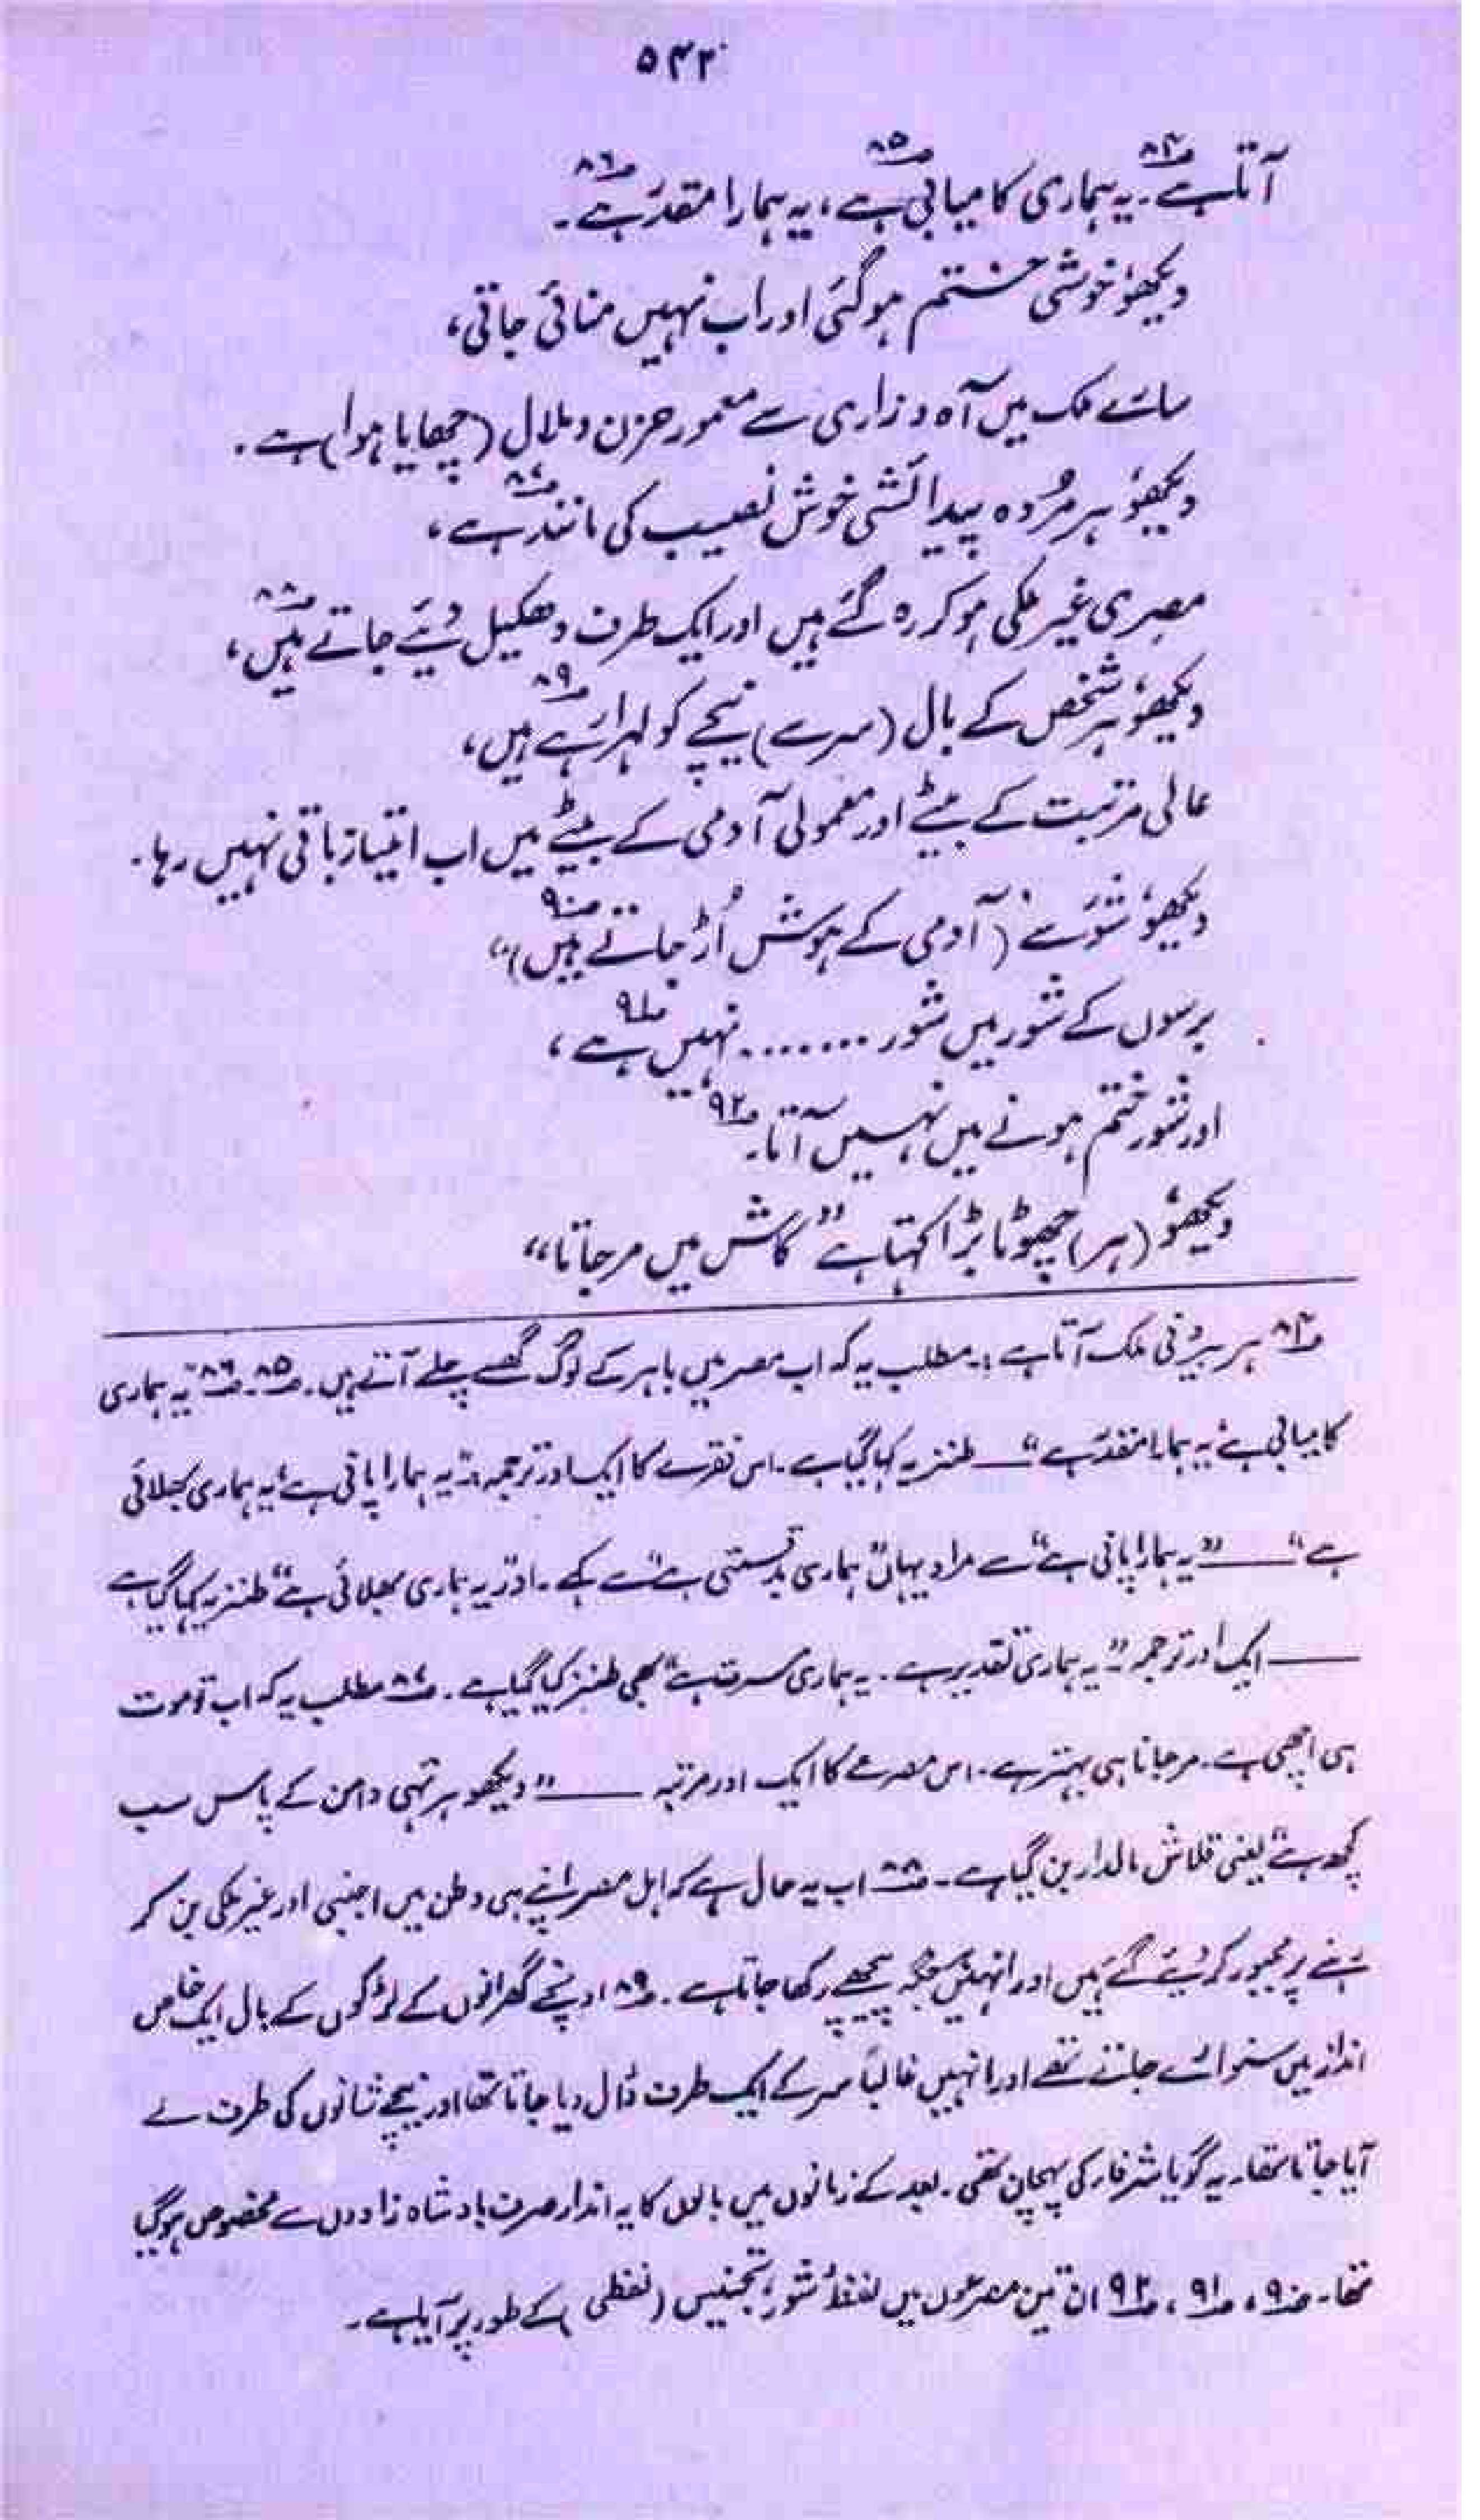 ۵۴۲
آتا ہے۸۴۔ یہ ہماری کامیابی ہے۸۵، یہ ہمارا مقدر ہے۸۶۔
دیکھو، خوشی ختم ہوگئی اور اب نہیں منائی جاتی،
سارے ملک میں آہ و زاری سے معمور حزن و ملال (چھایا ہوا) ہے۔
دیکھو، ہر مُردہ پیدائشی خوش نصیب کی مانند ہے۸۷،
مصری غیر ملکی ہو کر رہ گئے ہیں اور ایک طرف دھکیل دیئے جاتے ہیں۸۸،
دیکھو، ہر شخص کے بال (سر سے) نیچے کو لہرا رہے ہیں۸۹،
عالی مرتبت کے بیٹے اور معمولی آدمی کے بیٹے میں اب امتیاز باقی نہیں رہا۔
دیکھو، شور سے (آدمی کے ہوش اُڑ جاتے ہیں)۹۰،
برسوں کے شور میں شور ........ نہیں ہے۹۱،
اور شور ختم ہونے میں نہیں آتا۔۹۲
دیکھو، (ہر) چھوٹا بڑا کہتا ہے ”کاش میں مر جاتا“
۸۴ ہر بیرونی ملک آتا ہے :۔ مطلب یہ کہ اب مصر میں باہر کے لوگ گھسے چلے آتے ہیں۔ ۸۵۔ ۸۶ ”یہ ہماری
کامیابی ہے، یہ ہمارا مقدر ہے“ —— طنزیہ کہا گیا ہے۔ اس فقرے کا ایک اور ترجمہ :۔ ”یہ ہمارا پانی ہے، یہ ہماری بھلائی
ہے“ —— ”یہ ہمارا پانی ہے“ سے مراد یہاں ”ہماری بدقسمتی ہے“ سے ہے۔ اور ”یہ ہماری بھلائی ہے“ طنزیہ کہا گیا ہے
—— ایک اور ترجمہ ”یہ ہماری تقدیر ہے۔ یہ ہماری مسرت ہے“ بھی طنز کیا گیا ہے۔ ۸۷ مطلب یہ کہ اب تو موت
ہی اچھی ہے۔ مر جانا ہی بہتر ہے۔ اس مصرعے کا ایک اور مرتبہ —— ”دیکھو ہر تہی دامن کے پاس سب
کچھ ہے“ یعنی قلاش مالدار بن گیا ہے۔ ۸۸ اب یہ حال ہے کہ اہل مصر اپنے ہی وطن میں اجنبی اور غیر ملکی بن کر
رہنے پر مجبور کر دیئے گئے ہیں اور انہیں ہر جگہ پیچھے رکھا جاتا ہے۔ ۸۹ اونچے گھرانوں کے لڑکوں کے بال ایک خاص
انداز میں سنوارے جاتے تھے اور انہیں غالباً سر کے ایک طرف ڈال دیا جاتا تھا اور نیچے شانوں کی طرف لے
آیا جاتا تھا۔ یہ گویا شرفاء کی پہچان تھی۔ بعد کے زمانوں میں بالوں کا یہ انداز صرف بادشاہ زادوں سے مخصوص ہو گیا
تھا۔ ۹۰، ۹۱، ۹۲ ان تین مصرعوں میں لفظ ’شور‘ تجنیس (لفظی) کے طور پر آیا ہے۔